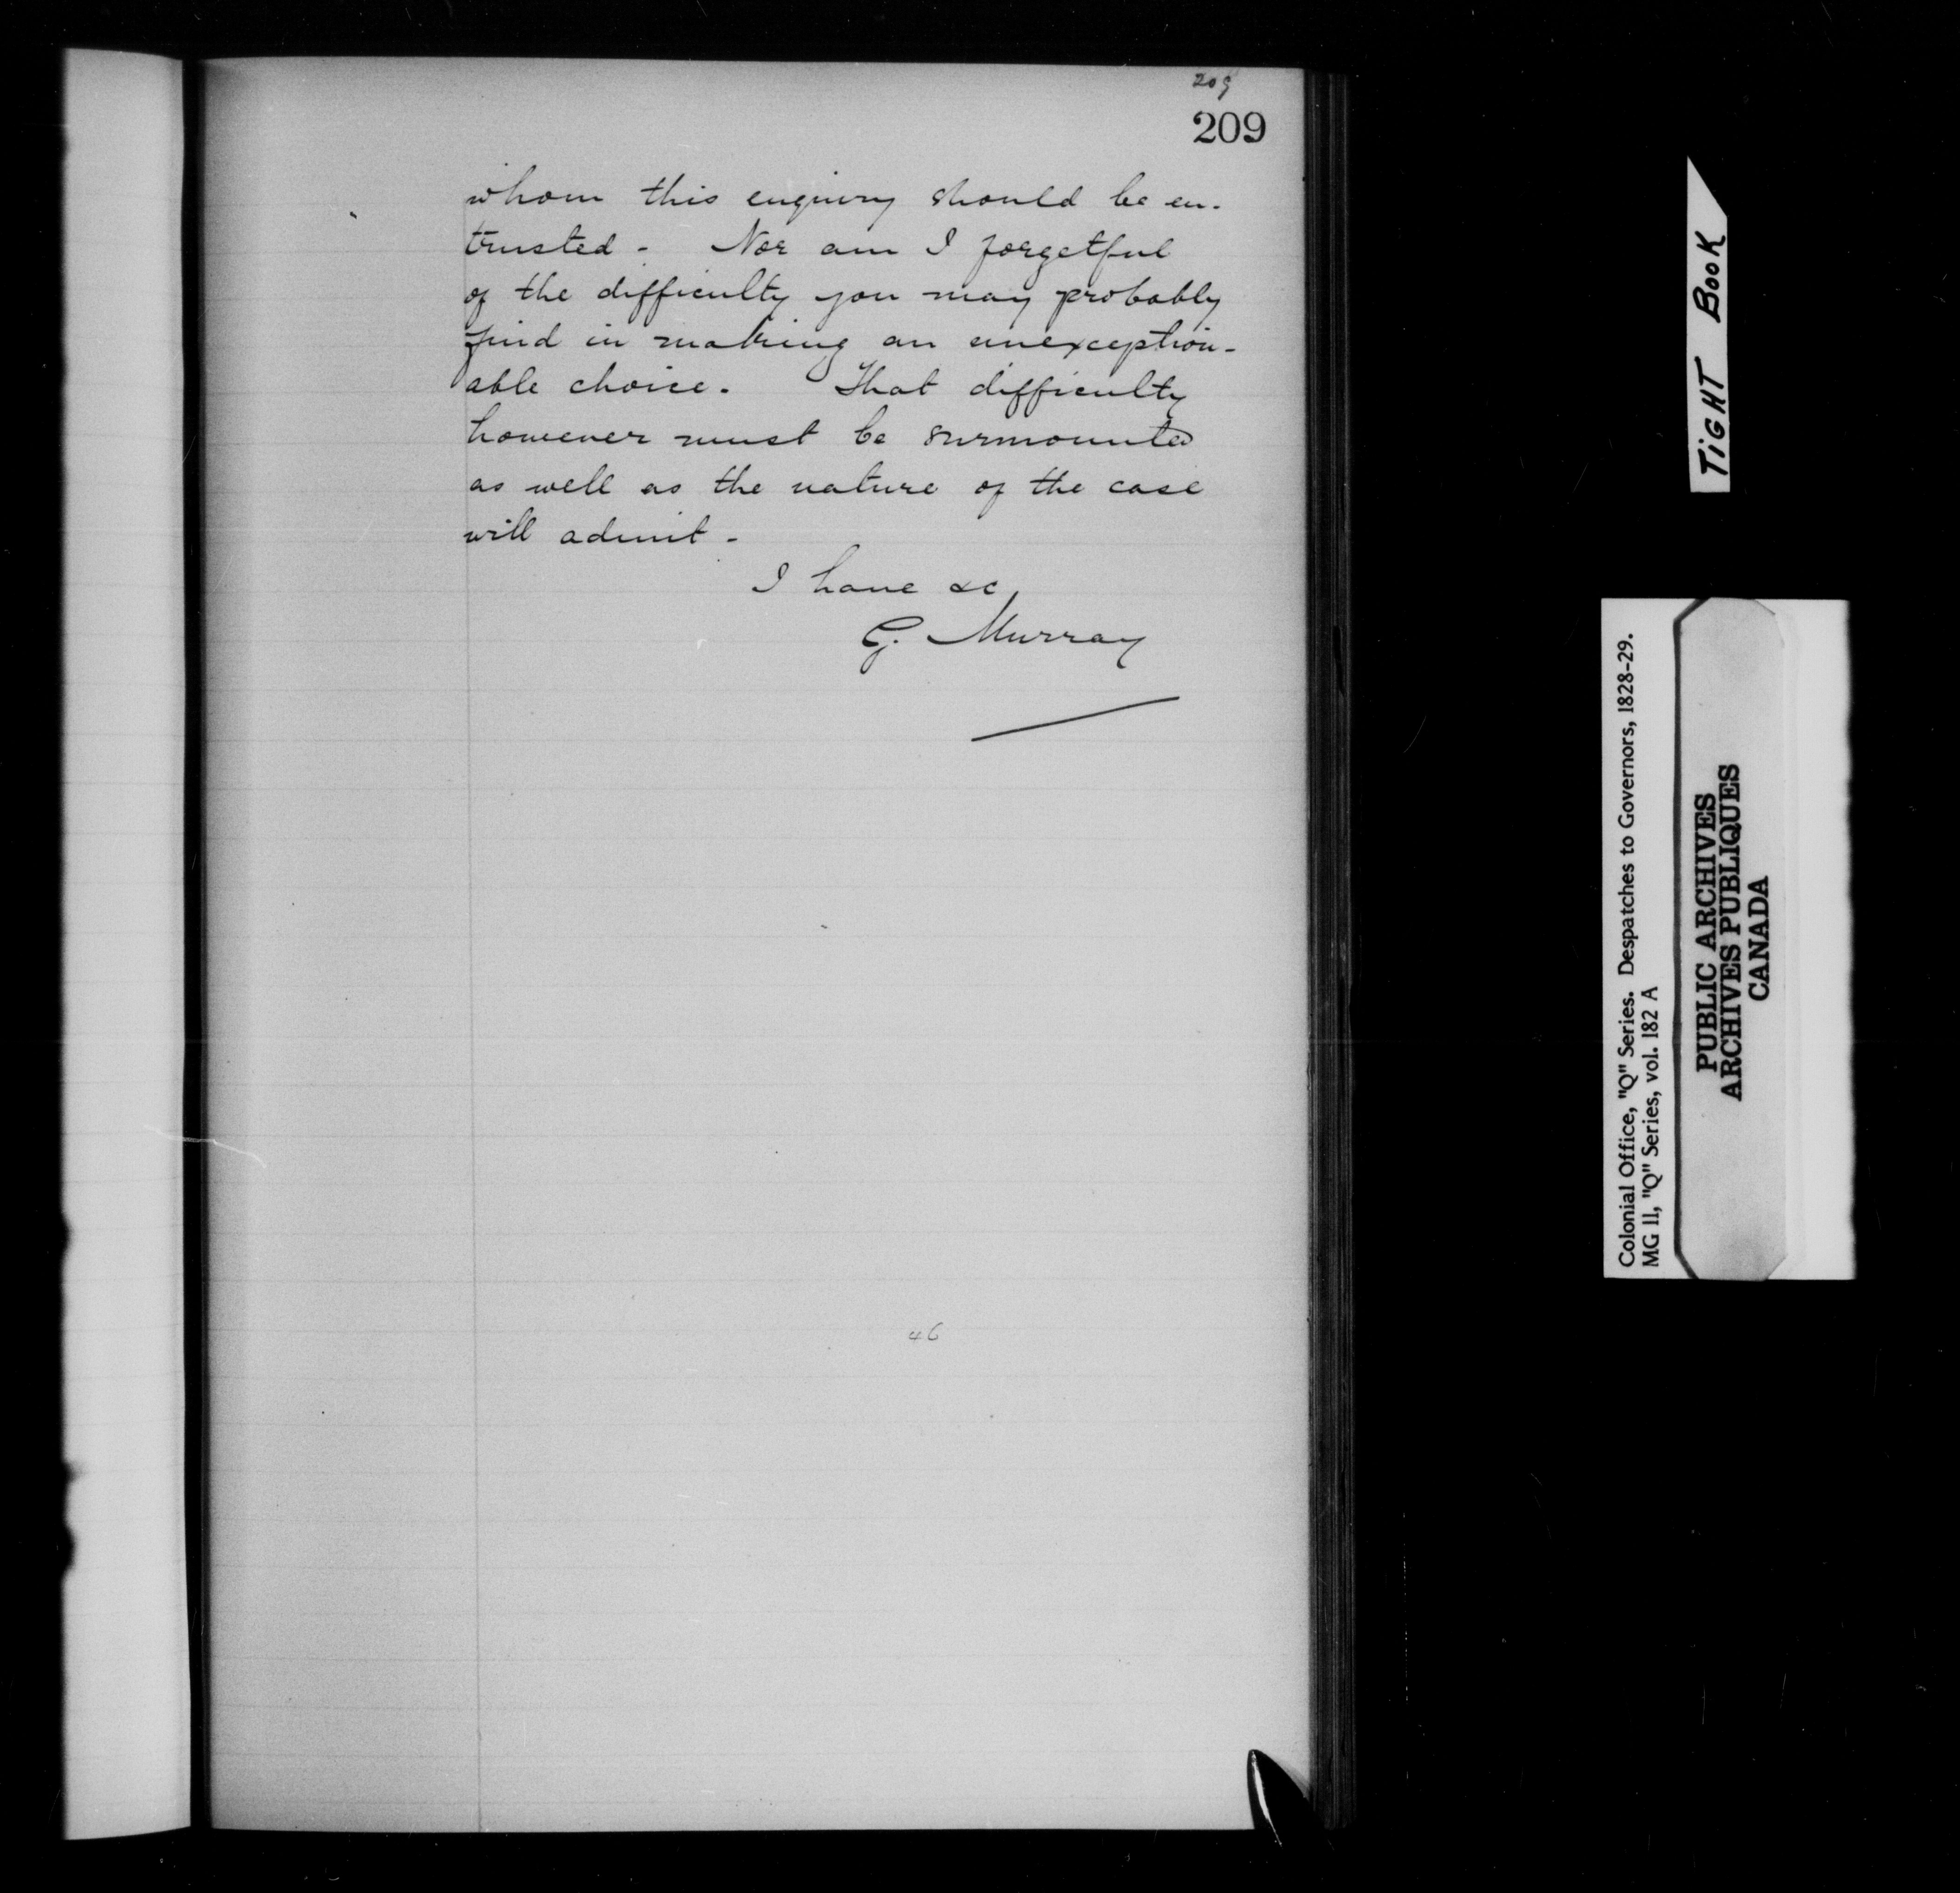 209
209
whom this enquiry should be en-
trusted - Nor am I forgetful
of the difficulty you may probably
find in making an unexception-
able choice. That difficulty
however must be surmounted
as well as the nature of the case
will admit -
I have &c
G. Murray
46
TIGHT BOOK
Colonial Office, "Q" Series. Despatches to Governors, 1828-29.
MG 11, "Q" Series, vol. 182 A
PUBLIC ARCHIVES
ARCHIVES PUBLIQUES
CANADA